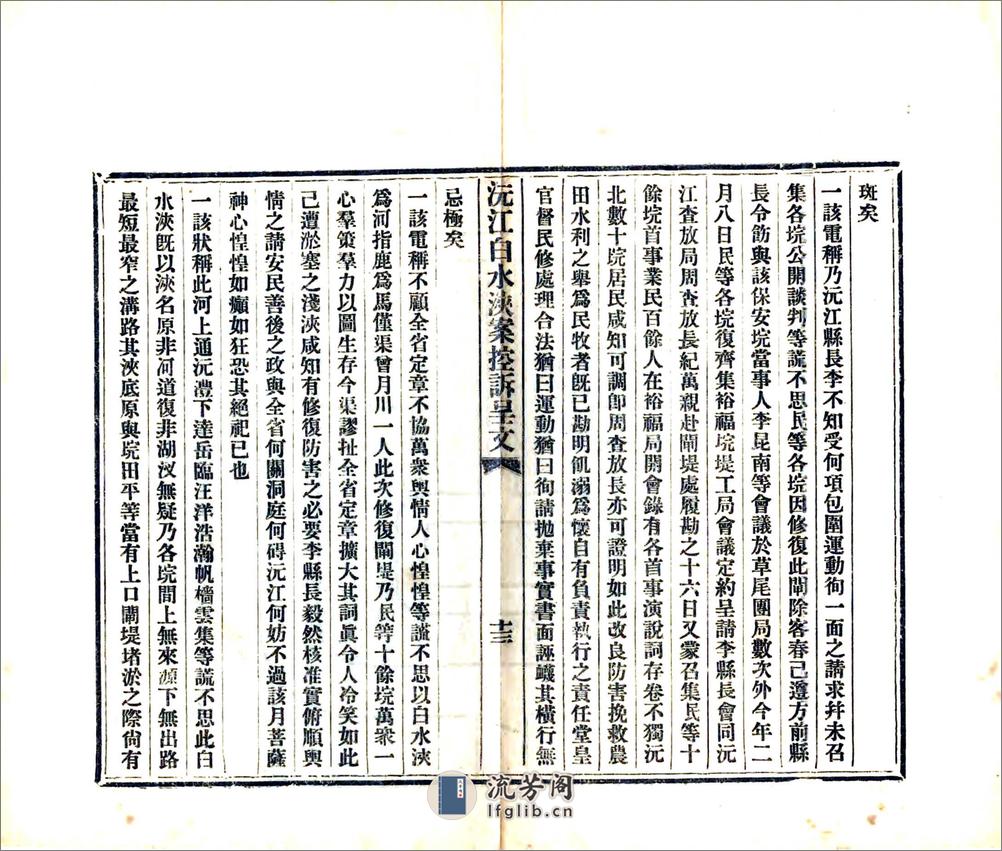 斑矣
一該電稱乃沅江縣長李不知受何項包圍運動徇一面之請求幷未召
集各垸公開談判等謊不思民等各垸因修復此閘除客春已遵方前縣
長令飭與該保安垸當事人李昆南等會議於草尾團局數次外今年二
月八日民等各垸復齊集裕福垸堤工局會議定約呈請李縣長會同沅
江查放局周查放長紀萬親赴閘堤處履勘之十六日又蒙召集民等十
餘垸首事業民百餘人在裕福局開會錄有各首事演說詞存卷不獨沅
北數十垸居民咸知可調卽周查放長亦可證明如此改良防害挽救農
田水利之舉爲民牧者旣已勘明飢溺爲懷自有負責執行之責任堂皇
官督民修處理合法猶曰運動猶曰徇請抛棄事實書面誣衊其橫行無
沅江白水浹案控訴呈文
十三
忌極矣
一該電稱不顧全省定章不協萬衆輿情人心惶惶等謊不思以白水浹
爲河指鹿爲馬僅渠曾月川一人此次修復閘堤乃民等十餘垸萬衆一
心羣策羣力以圖生存今渠謬扯全省定章擴大其詞眞令人冷笑如此
己遭淤塞之淺浹咸知有修復防害之必要李縣長毅然核准實俯順輿
情之請安民善後之政與全省何關洞庭何碍沅江何妨不過該月菩薩
神心惶惶如癲如狂恐其絕祀已也
一該狀稱此河上通沅澧下達岳臨汪洋浩瀚帆檣雲集等謊不思此白
水浹旣以浹名原非河道復非湖汊無疑乃各垸間上無來源下無出路
最短最窄之溝路其浹底原與垸田平等當有上口閘堤堵淤之際尙有
流芳阁
lfglib.cn